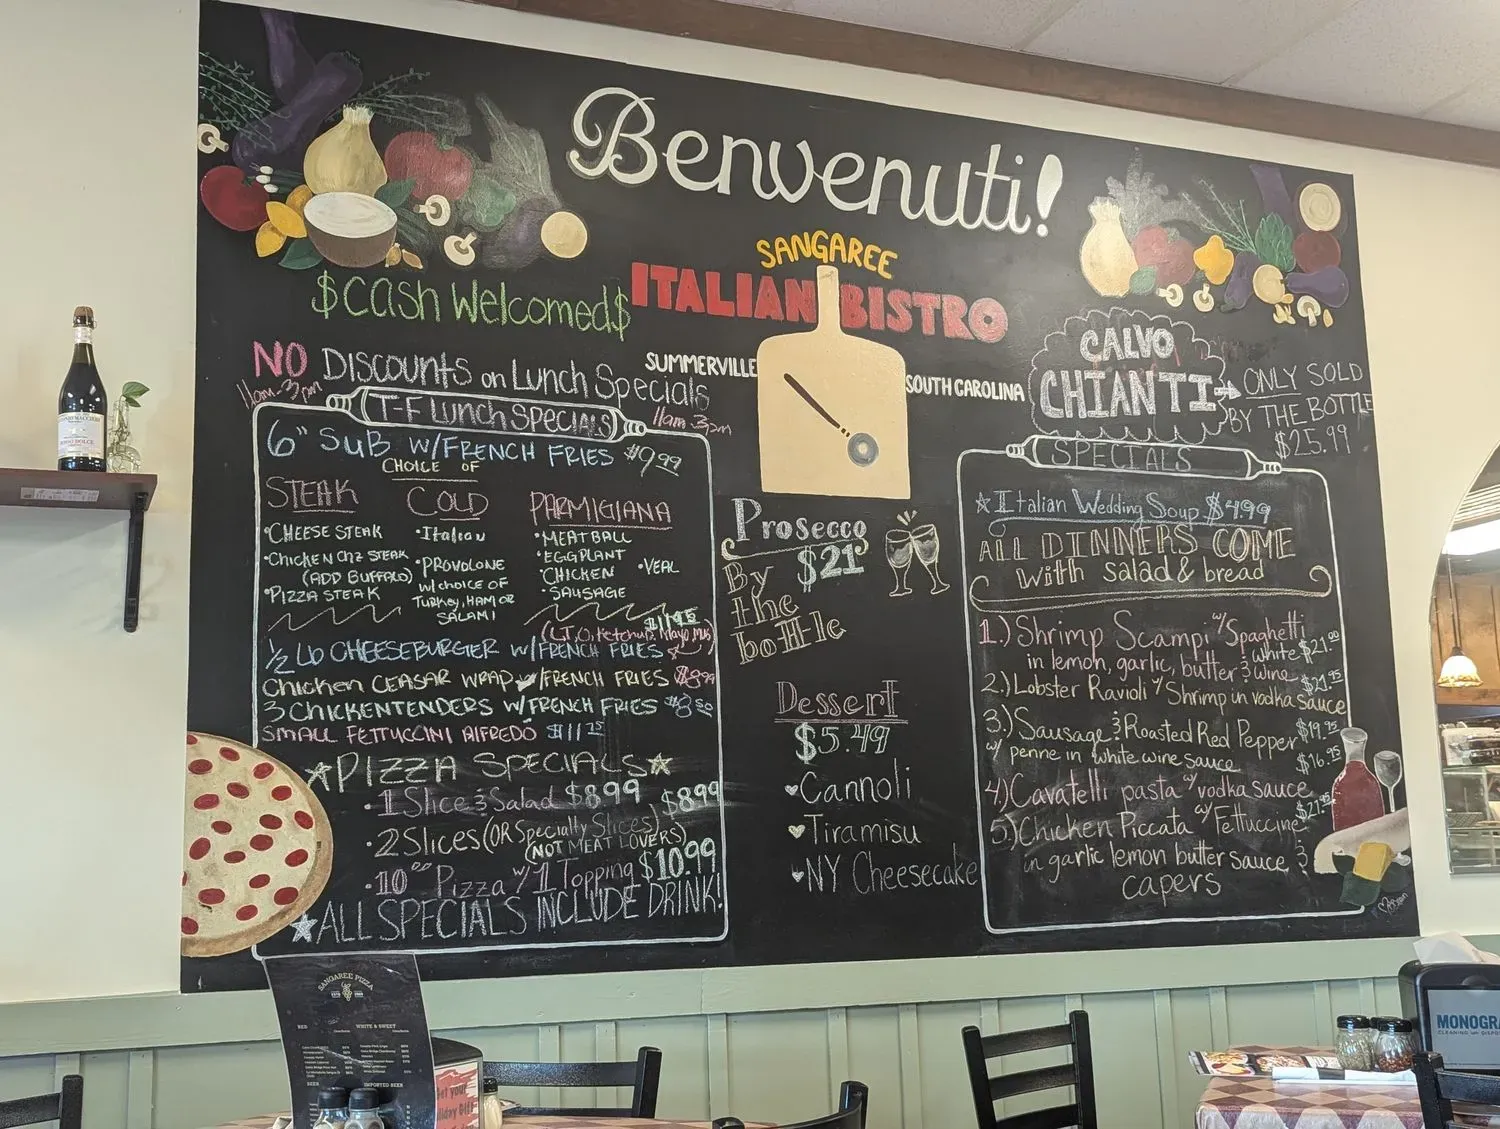 Benvenuti!
SANGAREE
ITALIAN BISTRO
SUMMERVILLE
SOUTH CAROLINA
$ Cash Welcomed $
NO Discounts on Lunch Specials
11am-3pm
T-F Lunch Specials
11am-3pm
6" SUB W/FRENCH FRIES $9.99
CHOICE OF
STEAK
• CHEESE STEAK
• Chicken Chz STEAK
(ADD BUFFALO)
• PIZZA STEAK
COLD
• Italian
• PROVOLONE
w/CHOICE OF
Turkey, HAM OR
SALAMI
PARMIGIANA
• MEATBALL
• EGGPLANT
• CHICKEN
• SAUSAGIE
• VEAL
(LT, O, Ketchup, Mayo, Mus)
$11.95
1/2 Lb CHEESEBURGIER W/FRENCH FRIES
Chicken CEASAR WRAP W/FRENCH FRIES $8.99
3 CHICKENTENDERS W/FRENCH FRIES $8.50
SMALL FETTUCCINI AlFREDO $11.75
PIZZA SPECIALS
• 1 Slice & Salad $8.99
• 2 Slices (OR Specialty Slices) $8.99
(NOT MEAT LOVERS)
• 10" Pizza w/ 1 Topping $10.99
ALL SPECIALS INCLUDE DRINK!
Prosecco
$21
By
the
bottle
Dessert
$5.49
Cannoli
Tiramisu
NY Cheesecake
CALVO
CHIANTI
ONLY SOLD
BY THE BOTTLE
$25.99
SPECIALS
Italian Wedding Soup $4.99
ALL DINNERS COME
with salad & bread
1.) Shrimp Scampi w/ Spaghetti
in lemon, garlic, butter & white wine $21.00
2.) Lobster Ravioli w/ Shrimp in vodka sauce $21.95
3.) Sausage & Roasted Red Pepper $19.95
w/ penne in white wine sauce
4.) Cavatelli pasta w/ vodka sauce $16.95
5.) Chicken Piccata w/ Fettuccine $21.95
in garlic lemon butter sauce &
capers
SANGAREE PIZZA
RED
WHITE & SWEET
BEER
IMPORTED BEER
MONOGRA